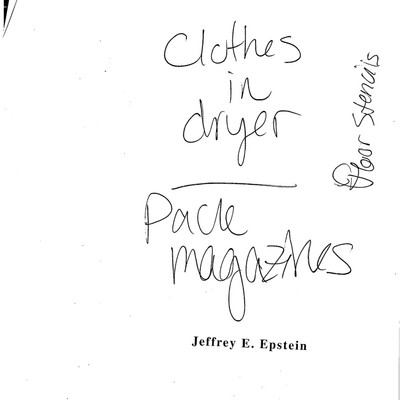 Clothes
in
dryer
Pack
magazines
Jeffrey E. Epstein
Floor Stencils